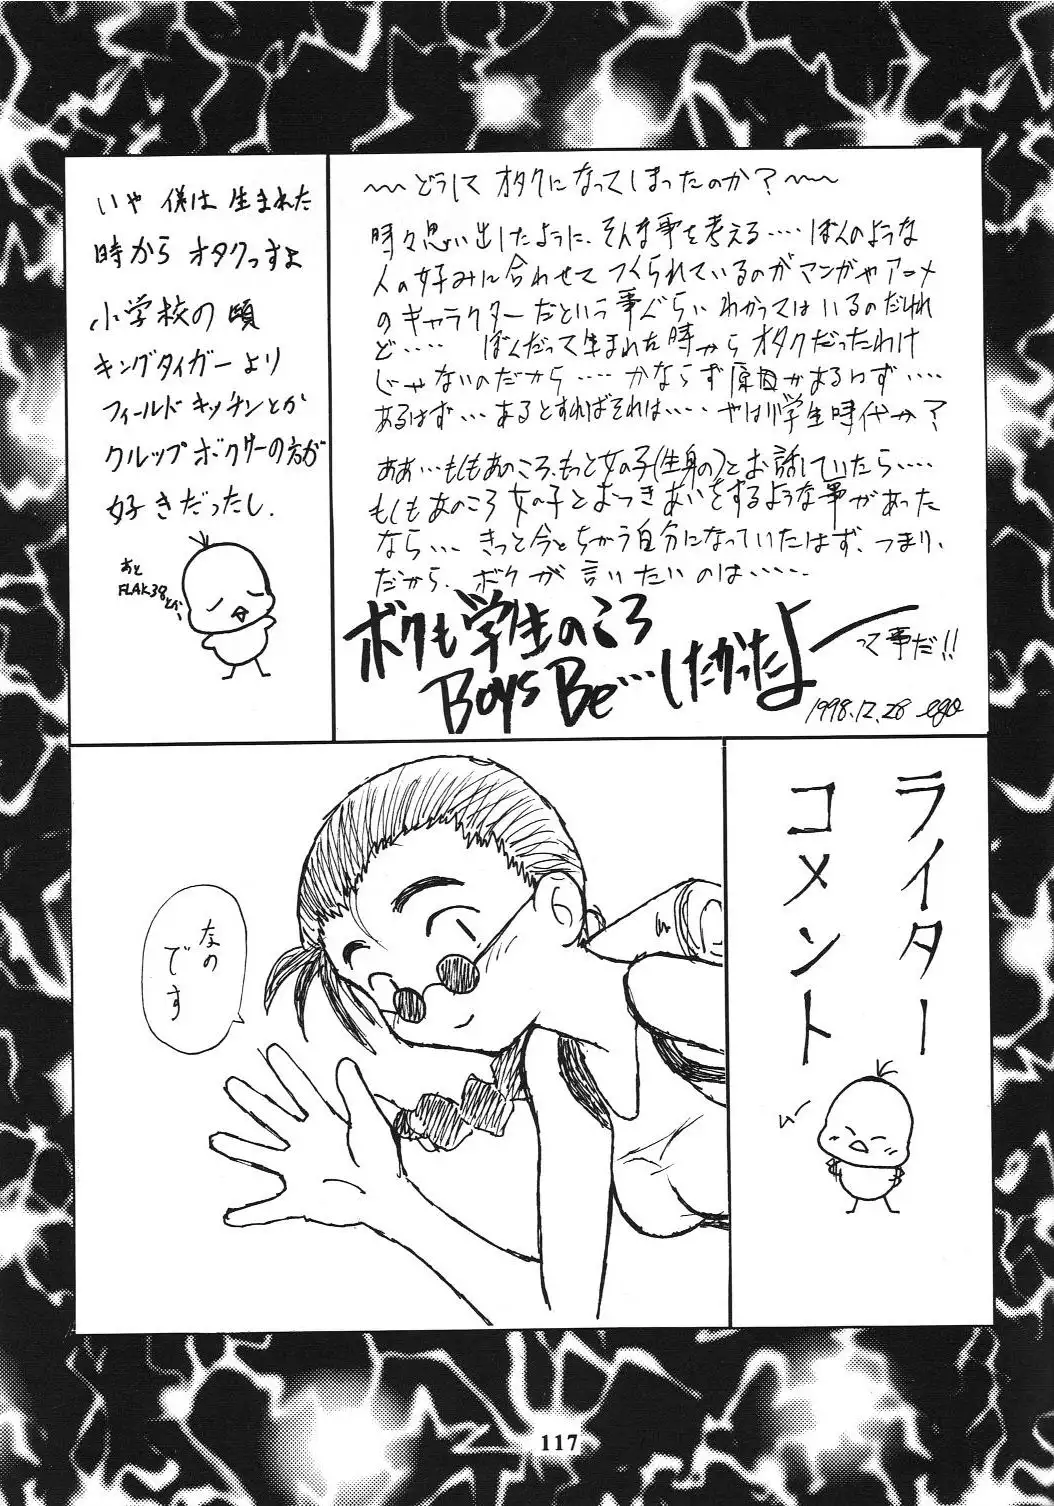 いや 僕は 生まれた
時から オタクっすよ
小学校の頃
キングタイガーより
フィールドキッチンとか
クルップボクサーの方が
好きだったし.
あと
FLAK38とか、
〜〜どうして オタクになってしまったのか？〜〜
時々思い出したように、そんな事を考える‥‥ぼくのような
人の好みに合わせて つくられているのがマンガやアニメ
のキャラクターだという事ぐらい わかってはいるのだけれ
ど‥‥ ぼくだって生まれた時からオタクだったわけ
じゃないのだから‥‥かならず原因があるはず‥‥
あるはず‥‥あるとすればそれは‥‥やはり学生時代か？
ああ‥‥もしもあのころ、もっと女の子(生身の)とお話していたら‥‥
もしもあのころ女の子とおつきあいをするような事があった
なら‥‥きっと今とちがう自分になっていたはず、つまり、
だから、ボクが言いたいのは‥‥‥
ボクも学生のころ
Boys Be…したかったよー
って事だ!!
1998.12.28 ego
ライター
コメント
なの
です
117